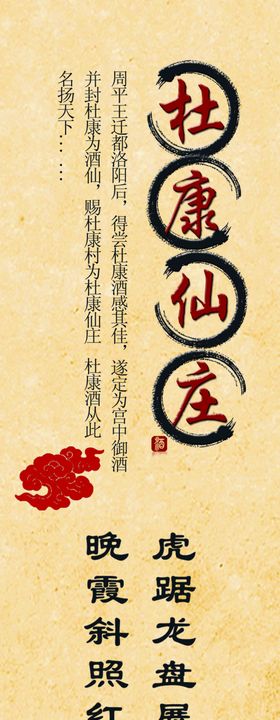 杜康仙庄
周平王迁都洛阳后，得尝杜康酒感其佳，遂定为宫中御酒
并封杜康为酒仙，赐杜康村为杜康仙庄 杜康酒从此
名扬天下……
酒
虎踞龙盘展
晚霞斜照红